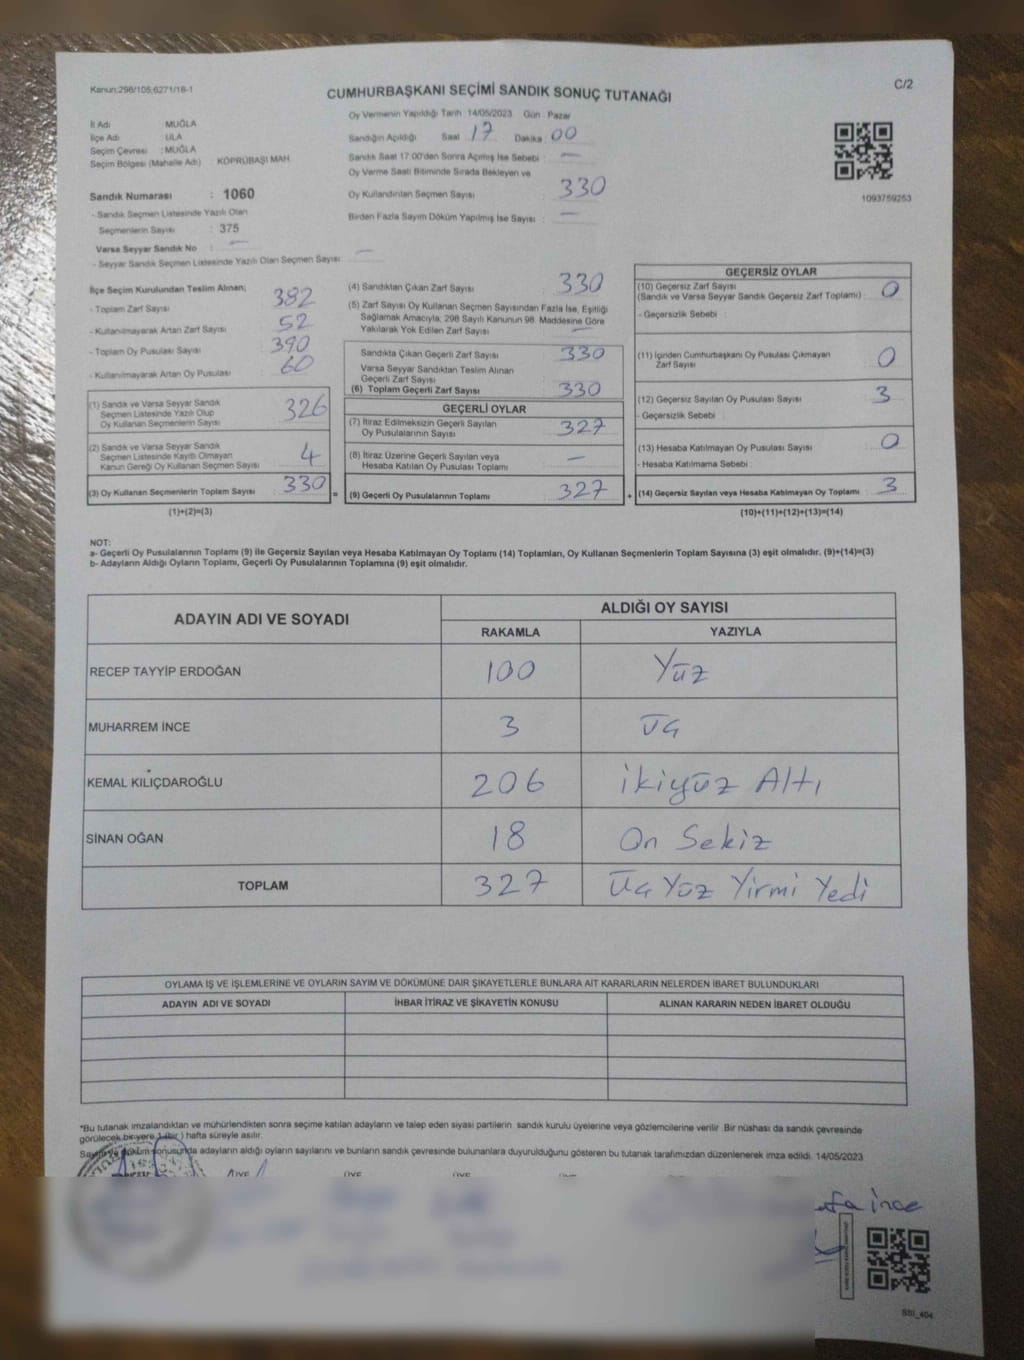 Kanun:298/105,6271/18-1
C/2
CUMHURBAŞKANI SEÇİMİ SANDIK SONUÇ TUTANAĞI
İl Adı : MUĞLA
İlçe Adı : ULA
Seçim Çevresi : MUĞLA
Seçim Bölgesi (Mahalle Adı) : KÖPRÜBAŞI MAH.
Sandık Numarası : 1060
- Sandık Seçmen Listesinde Yazılı Olan
Seçmenlerin Sayısı : 375
Varsa Seyyar Sandık No : —
- Seyyar Sandık Seçmen Listesinde Yazılı Olan Seçmen Sayısı : —
Oy Vermenin Yapıldığı Tarih 14/05/2023 Gün : Pazar
Sandığın Açıldığı Saat 17 Dakika : 00
Sandık Saat 17:00'den Sonra Açılmış İse Sebebi : —
Oy Verme Saati Bitiminde Sırada Bekleyen ve
Oy Kullandırılan Seçmen Sayısı : 330
Birden Fazla Sayım Döküm Yapılmış İse Sayısı : —
1093759253
İlçe Seçim Kurulundan Teslim Alınan;
- Toplam Zarf Sayısı : 382
- Kullanılmayarak Artan Zarf Sayısı : 52
- Toplam Oy Pusulası Sayısı : 390
- Kullanılmayarak Artan Oy Pusulası : 60
(1) Sandık ve Varsa Seyyar Sandık
Seçmen Listesinde Yazılı Olup
Oy Kullanan Seçmenlerin Sayısı : 326
(2) Sandık ve Varsa Seyyar Sandık
Seçmen Listesinde Kayıtlı Olmayan
Kanun Gereği Oy Kullanan Seçmen Sayısı : 4
(3) Oy Kullanan Seçmenlerin Toplam Sayısı : 330
(1)+(2)=(3)
(4) Sandıktan Çıkan Zarf Sayısı : 330
(5) Zarf Sayısı Oy Kullanan Seçmen Sayısından Fazla İse, Eşitliği
Sağlamak Amacıyla, 298 Sayılı Kanunun 98. Maddesine Göre
Yakılarak Yok Edilen Zarf Sayısı : —
Sandıkta Çıkan Geçerli Zarf Sayısı : 330
Varsa Seyyar Sandıktan Teslim Alınan
Geçerli Zarf Sayısı
(6) Toplam Geçerli Zarf Sayısı : 330
GEÇERLİ OYLAR
(7) İtiraz Edilmeksizin Geçerli Sayılan
Oy Pusulalarının Sayısı : 327
(8) İtiraz Üzerine Geçerli Sayılan veya
Hesaba Katılan Oy Pusulası Toplamı : —
= (9) Geçerli Oy Pusulalarının Toplamı : 327 +
GEÇERSİZ OYLAR
(10) Geçersiz Zarf Sayısı
(Sandık ve Varsa Seyyar Sandık Geçersiz Zarf Toplamı) : 0
- Geçersizlik Sebebi :
(11) İçinden Cumhurbaşkanı Oy Pusulası Çıkmayan
Zarf Sayısı : 0
(12) Geçersiz Sayılan Oy Pusulası Sayısı : 3
- Geçersizlik Sebebi :
(13) Hesaba Katılmayan Oy Pusulası Sayısı : 0
- Hesaba Katılmama Sebebi :
(14) Geçersiz Sayılan veya Hesaba Katılmayan Oy Toplamı : 3
(10)+(11)+(12)+(13)=(14)
NOT:
a- Geçerli Oy Pusulalarının Toplamı (9) ile Geçersiz Sayılan veya Hesaba Katılmayan Oy Toplamı (14) Toplamları, Oy Kullanan Seçmenlerin Toplam Sayısına (3) eşit olmalıdır. (9)+(14)=(3)
b- Adayların Aldığı Oyların Toplamı, Geçerli Oy Pusulalarının Toplamına (9) eşit olmalıdır.
ADAYIN ADI VE SOYADI ALDIĞI OY SAYISI
RAKAMLA YAZIYLA
RECEP TAYYİP ERDOĞAN 100 Yüz
MUHARREM İNCE 3 Üç
KEMAL KILIÇDAROĞLU 206 ikiyüz Altı
SİNAN OĞAN 18 On Sekiz
TOPLAM 327 Üç Yüz Yirmi Yedi
OYLAMA İŞ VE İŞLEMLERİNE VE OYLARIN SAYIM VE DÖKÜMÜNE DAİR ŞİKAYETLERLE BUNLARA AİT KARARLARIN NELERDEN İBARET BULUNDUKLARI
ADAYIN ADI VE SOYADI İHBAR İTİRAZ VE ŞİKAYETİN KONUSU ALINAN KARARIN NEDEN İBARET OLDUĞU
*Bu tutanak imzalandıktan ve mühürlendikten sonra seçime katılan adayların ve talep eden siyasi partilerin sandık kurulu üyelerine veya gözlemcilerine verilir. Bir nüshası da sandık çevresinde
görülecek bir yere 1 (bir) hafta süreyle asılır.
döküm sonusunda adayların aldığı oyların sayılarını ve bunların sandık çevresinde bulunanlara duyurulduğunu gösteren bu tutanak tarafımızdan düzenlenerek imza edildi. 14/05/2023
ÜYE ÜYE ÜYE ÜYE
ince
SSI_404